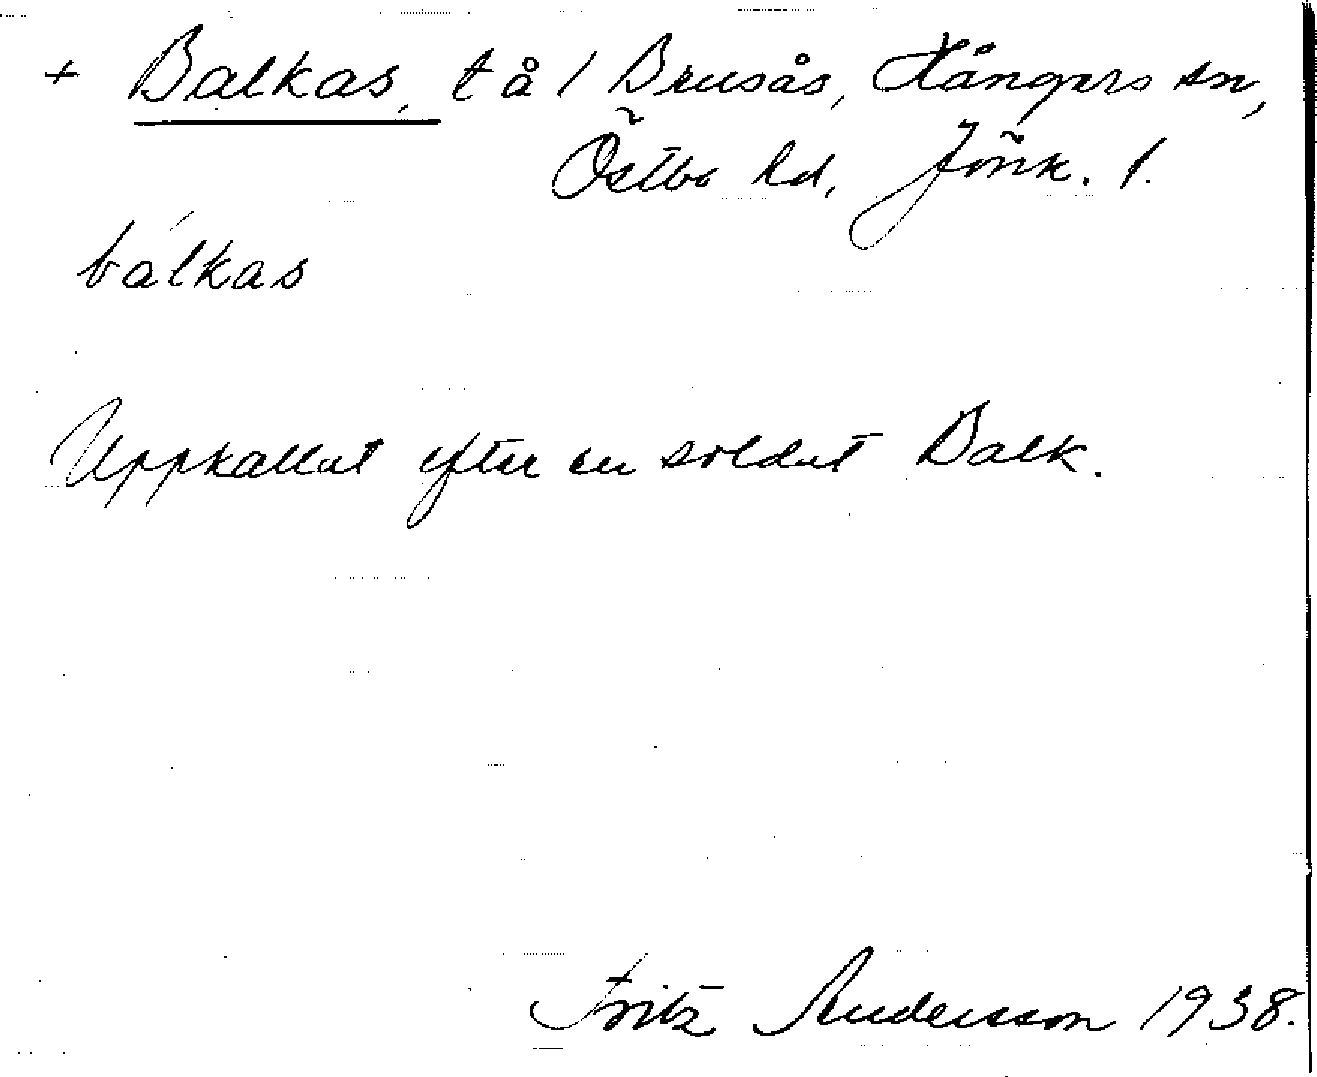 + Balkas, t å / Brusås, Hångers sn,
Östbo hd, Jönk. l.
bálkas
Uppkallat efter en soldat Balk.
Fritz Andersson 1938.